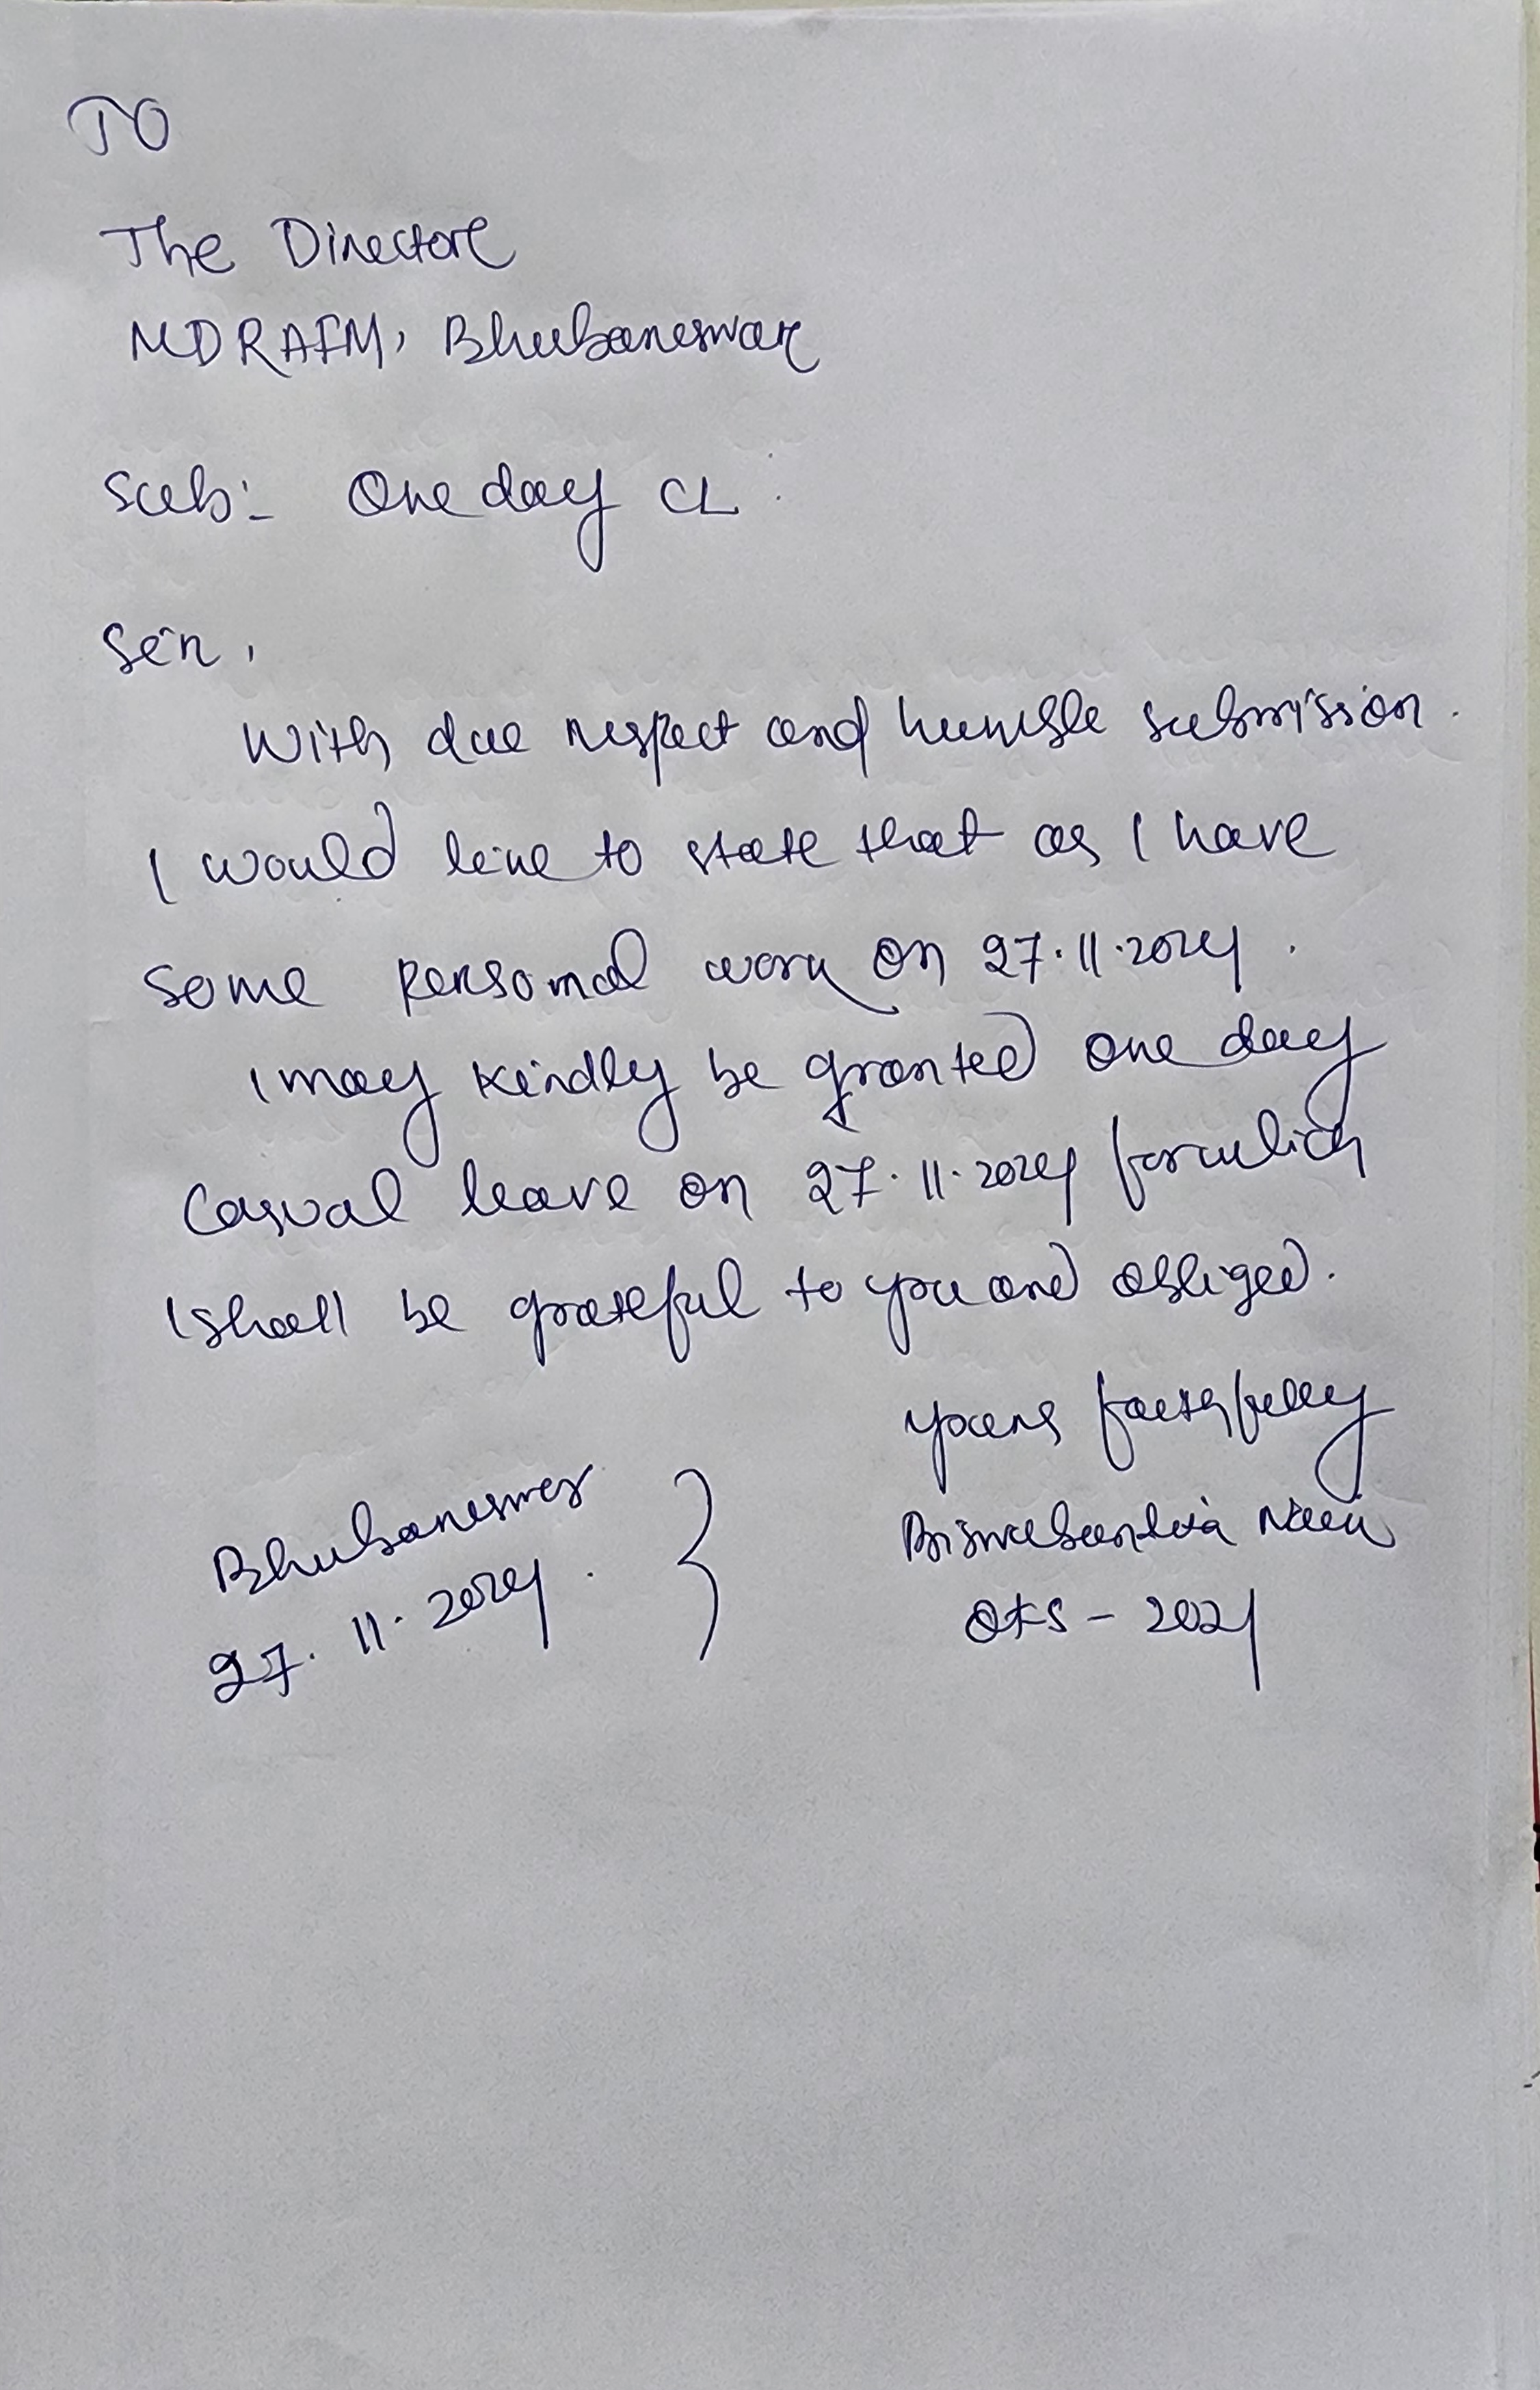 TO
The Director
MDRAFM, Bhubaneswar
Sub:- One day CL
Sir,
With due respect and humble submission.
I would like to state that as I have
some personal work on 27.11.2024.
I may kindly be granted one day
Casual leave on 27.11.2024 for which
I shall be grateful to you and obliged.
Yours faithfully
Bhubaneswar
27.11.2024. }
OFS - 2021